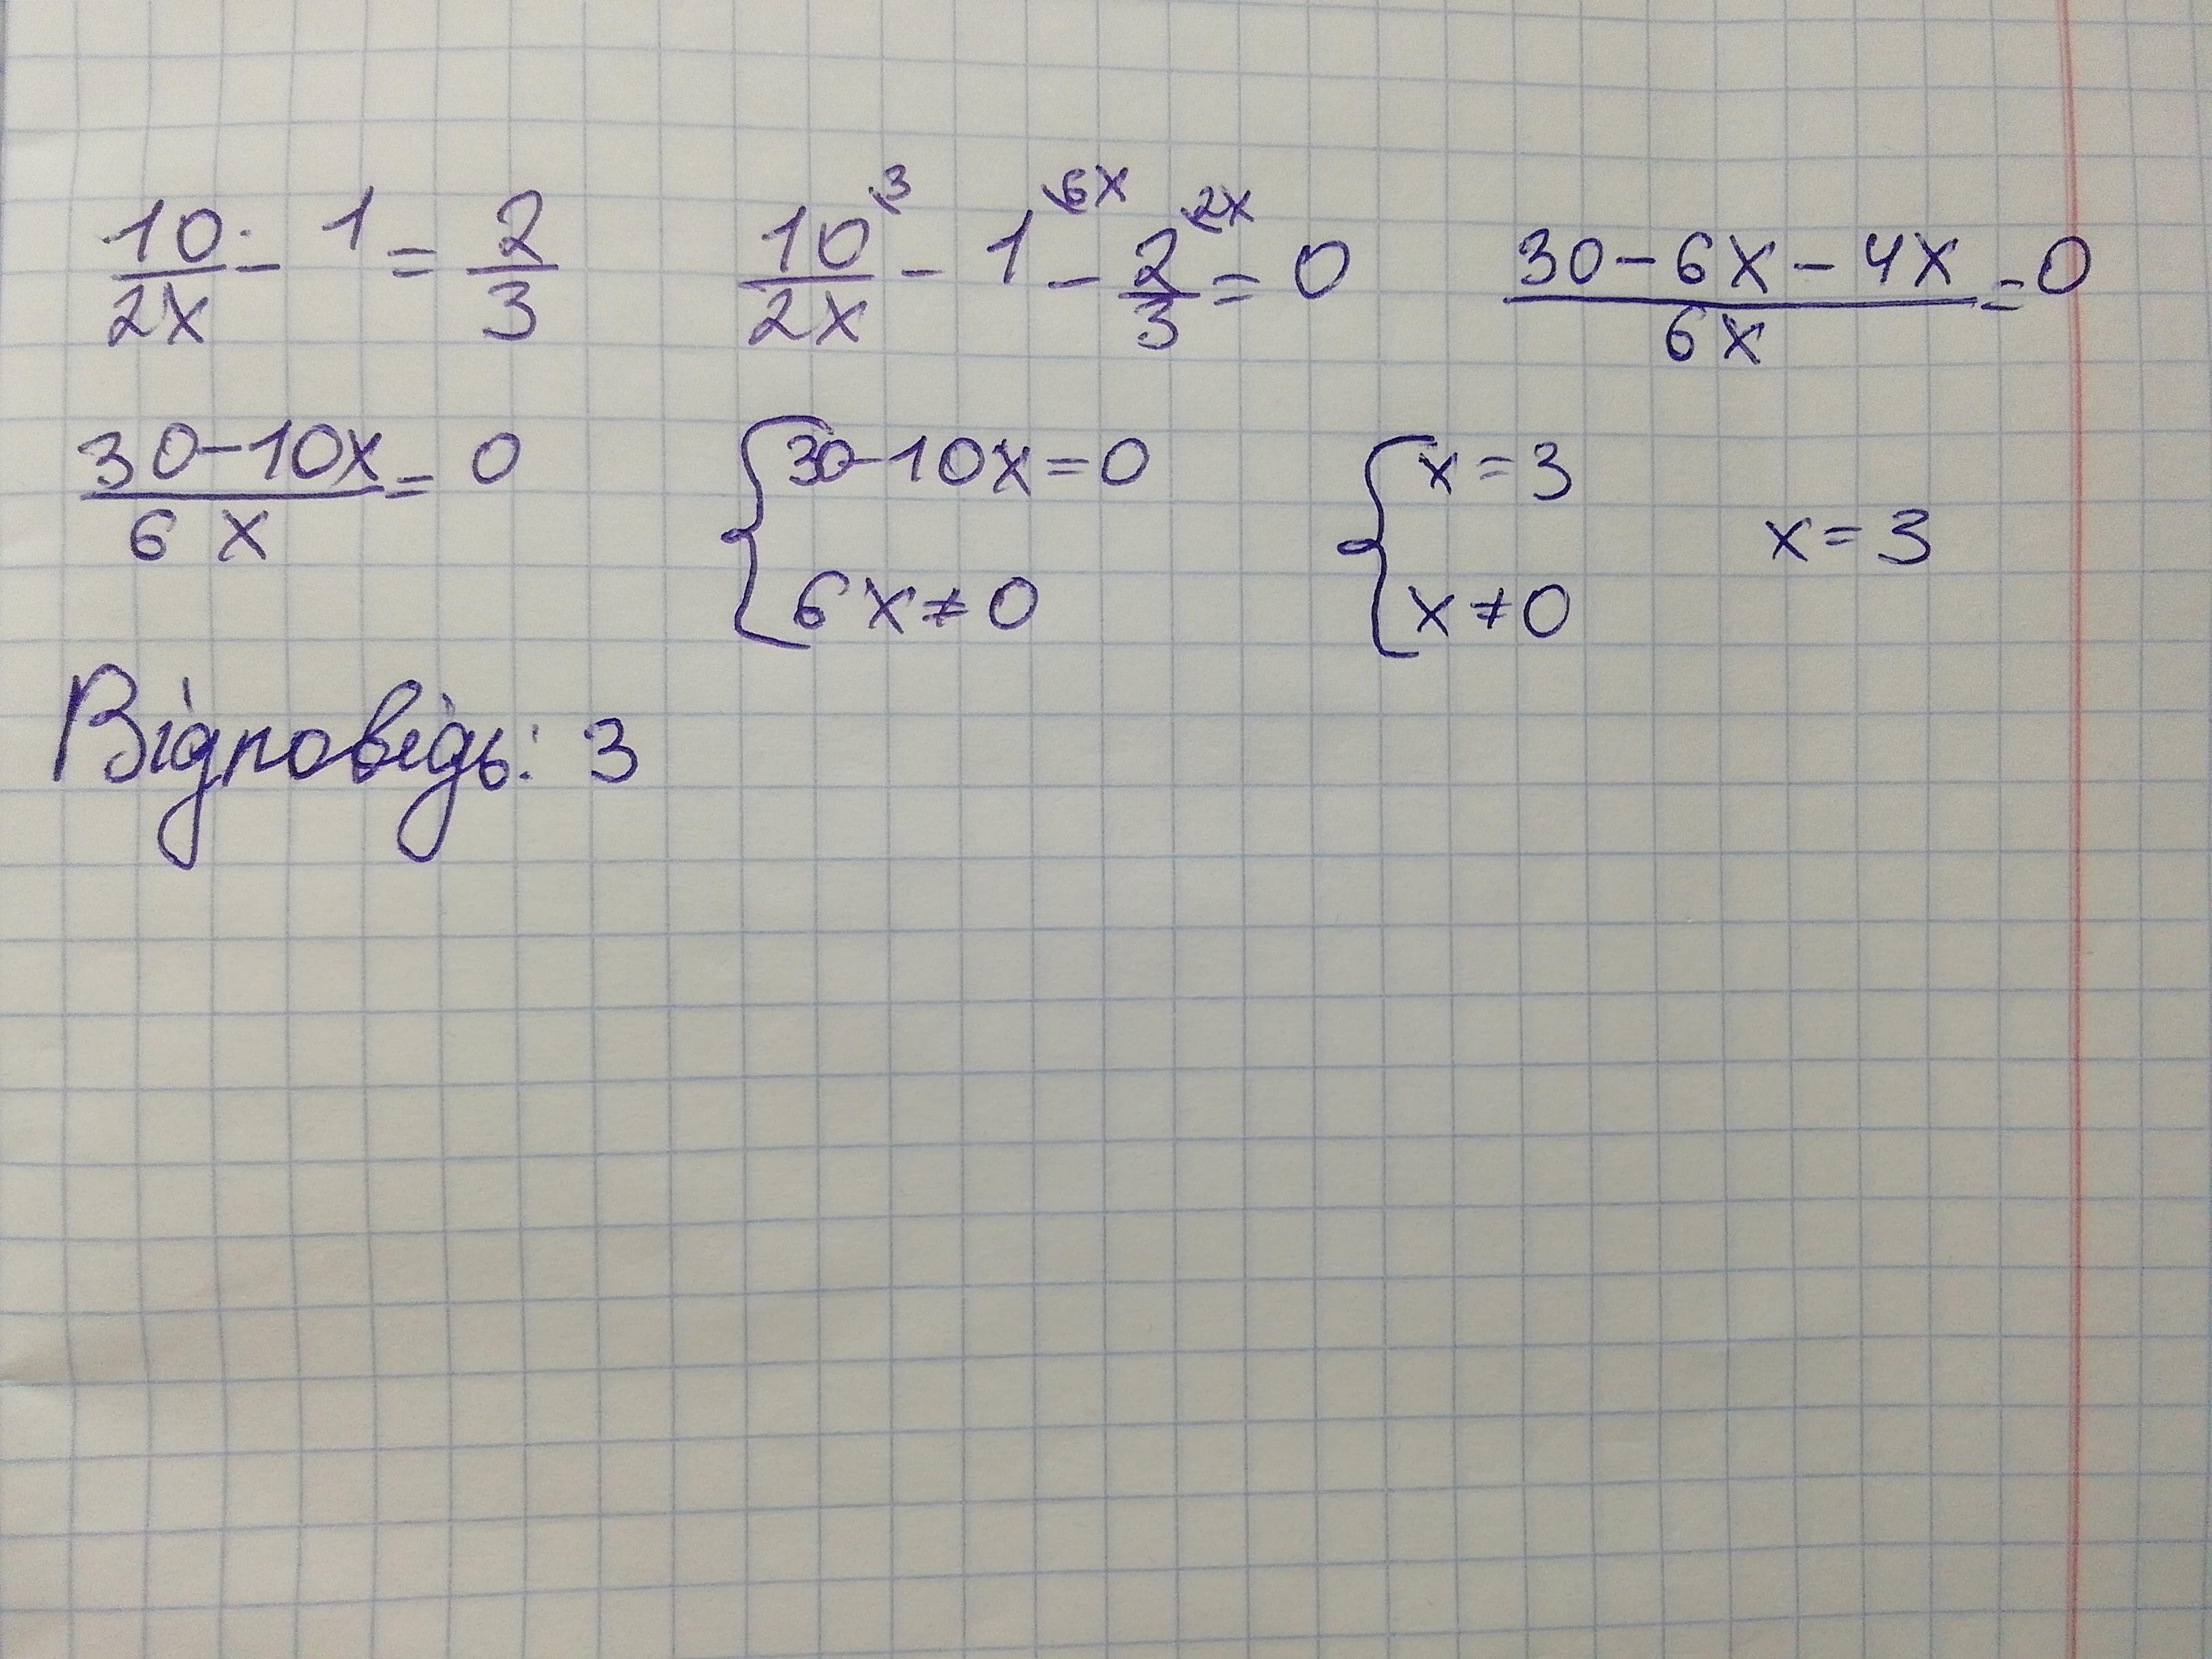 10/2x - 1 = 2/3    10\3/2x - 1\6x - 2\2x/3 = 0    30-6x-4x/6x = 0
30-10x/6x = 0    { 30-10x=0    { x=3    x=3
6x≠0    x≠0
Відповідь: 3